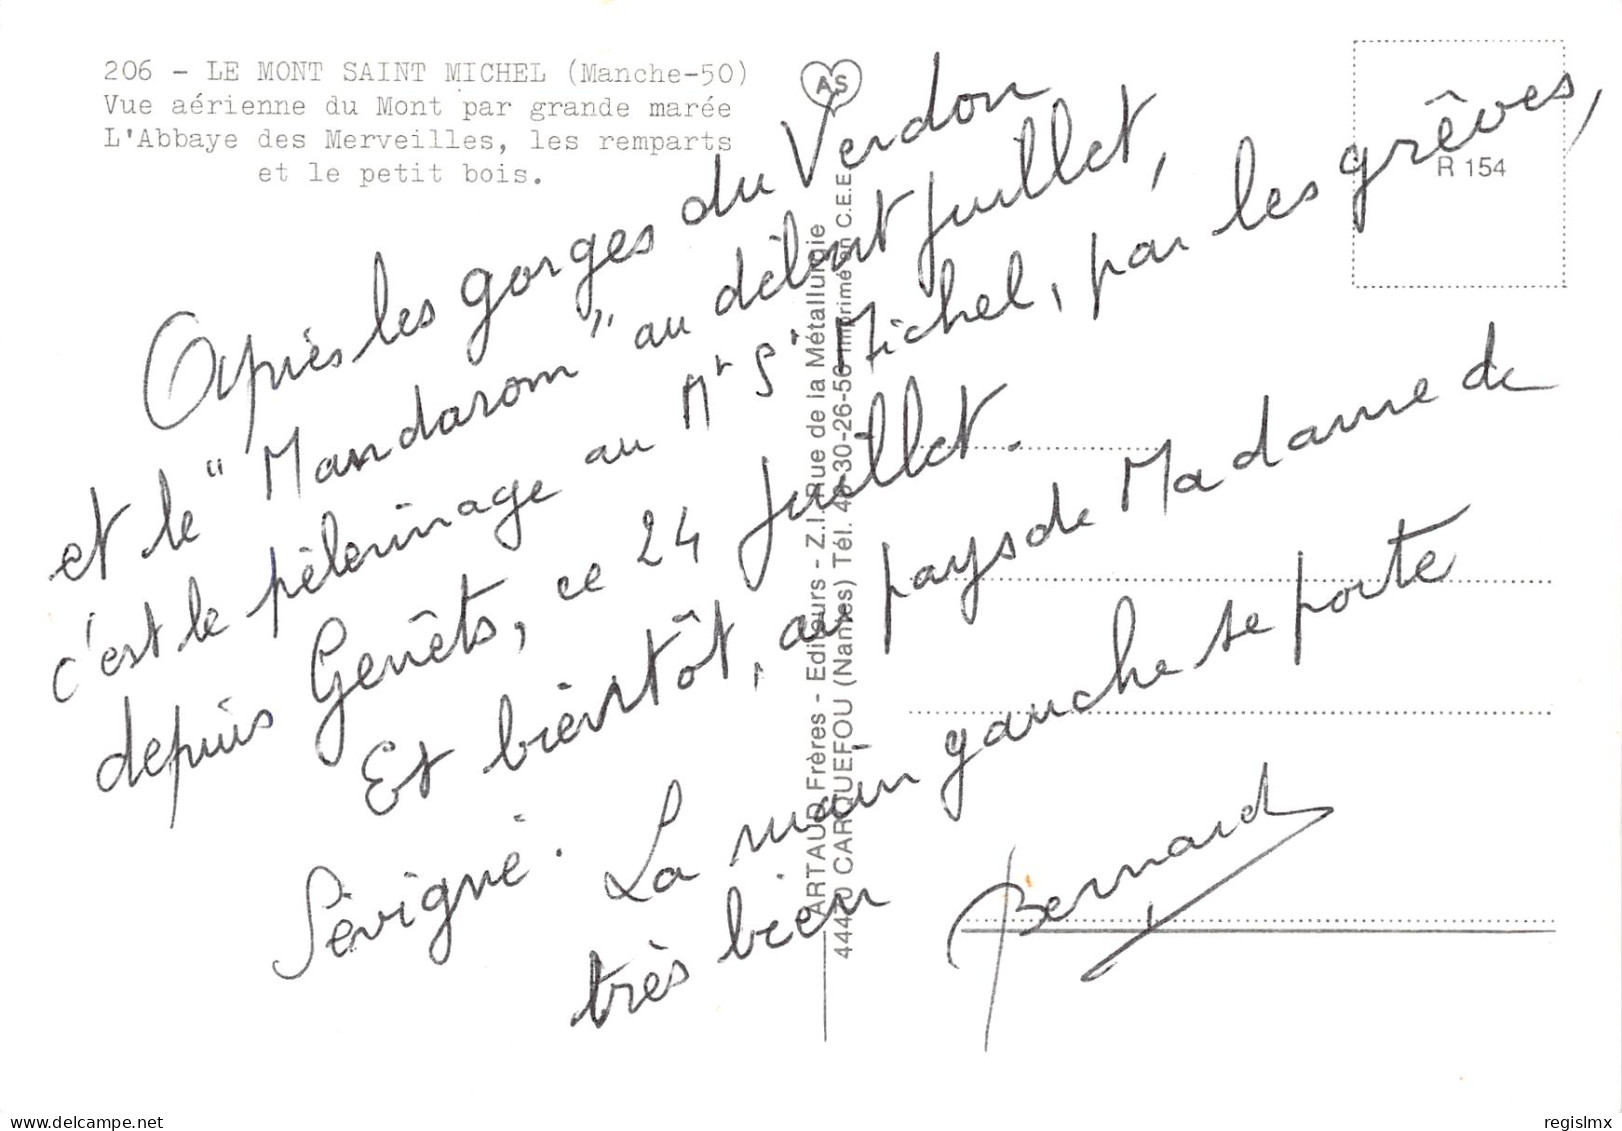 206 - LE MONT SAINT MICHEL (Manche-50)
Vue aérienne du Mont par grande marée
L'Abbaye des Merveilles, les remparts
et le petit bois.
AS
R 154
ARTAUD Frères - Editeurs - Z.I. Rue de la Métallurgie
44470 CARQUEFOU (Nantes) Tél. 40-30-26-56 Imprimé en C.E.E.
Après les gorges du Verdon
et le "Mandarom" au début juillet,
c'est le pèlerinage au Mt St Michel, par les grêves,
depuis Genêts, ce 24 juillet.
Et bientôt, au pays de Madame de
Sévigné. La main gauche se porte
très bien
Bernard
delcampe.net
regislmx